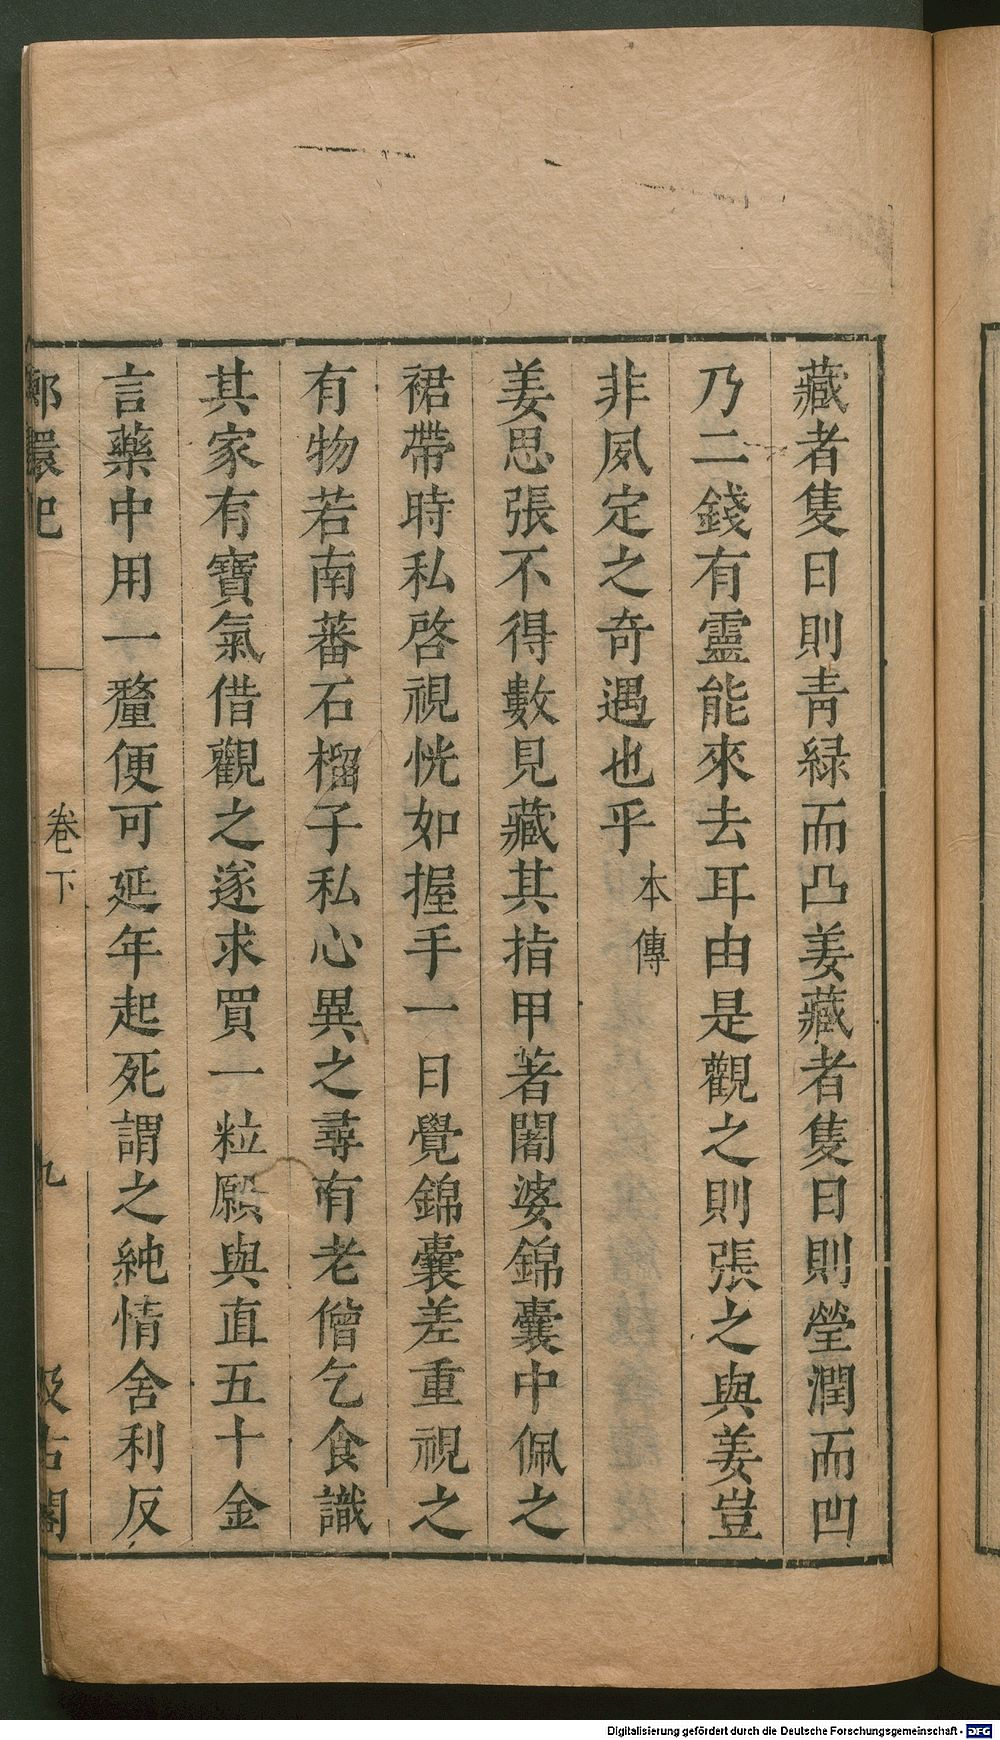 藏者隻日則青緑而凸姜藏者隻日則瑩潤而凹
乃二錢有靈能來去耳由是觀之則張之與姜豈
非夙定之奇遇也乎 本傳
姜思張不得數見藏其指甲著闍婆錦囊中佩之
裙帶時私啓視恍如握手一日覺錦囊差重視之
有物若南蕃石榴子私心異之尋有老僧乞食識
其家有寶氣借觀之遂求買一粒願與直五十金
言藥中用一釐便可延年起死謂之純情舍利反
卷下
九
汲古閣
Digitalisierung gefördert durch die Deutsche Forschungsgemeinschaft - DFG